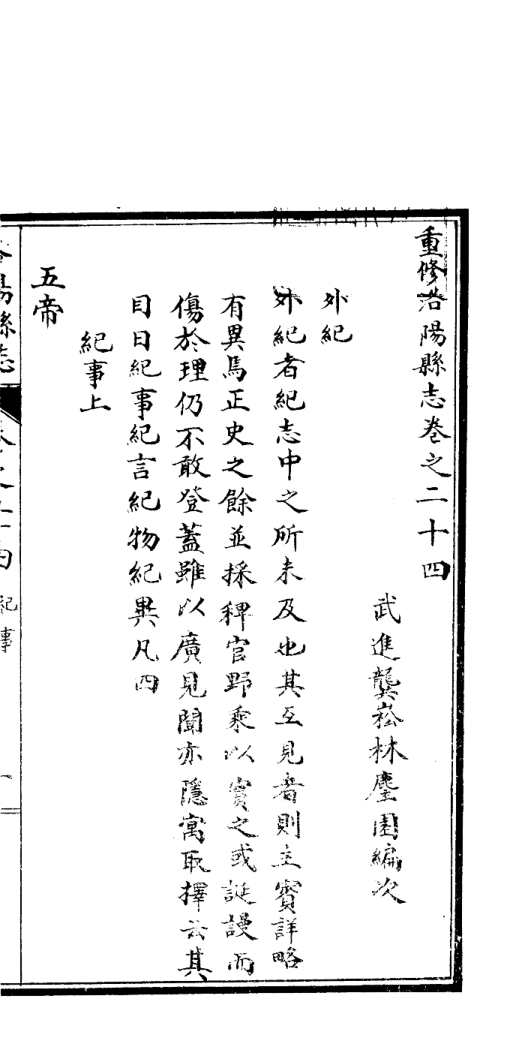 重修洛陽縣志卷之二十四
武進龔崧林麈園編次
外紀
外紀者紀志中之所未及也其互見者則主賓詳略
有異焉正史之餘並採稗官野乘以實之或誕謾而
傷於理仍不敢登蓋雖以廣見聞亦隱寓取擇云其
目曰紀事紀言紀物紀異凡四
紀事上
五帝
洛陽縣志
卷之二十四 紀事
一